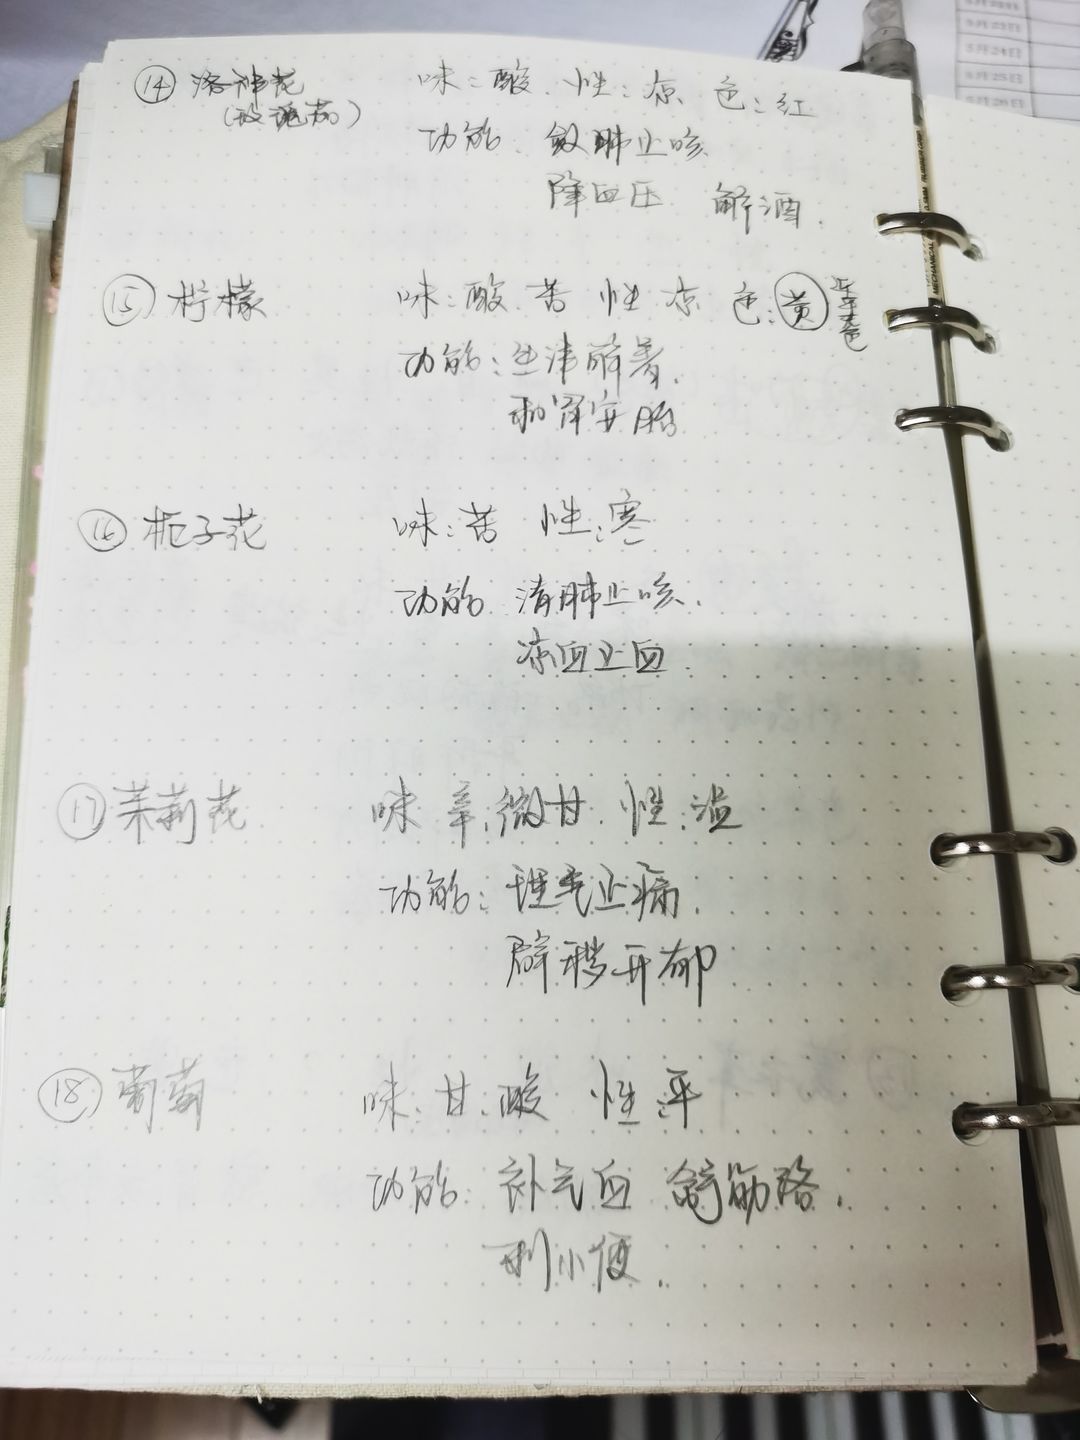 ⑭ 洛神花 味:酸 性:凉 色:红
(玫瑰茄)
功能 敛肺止咳
降血压 解酒
⑮ 柠檬 味:酸 苦 性 凉 色:黄
功能:生津解暑
和胃安胎
⑯ 栀子花 味:苦 性:寒
功能 清肺止咳
凉血止血
⑰ 茉莉花 味 辛,微甘 性:温
功能:理气止痛
辟秽开郁
⑱ 葡萄 味:甘 酸 性:平
功能:补气血 舒筋络
利小便
5月23日
5月24日
5月25日
5月26日